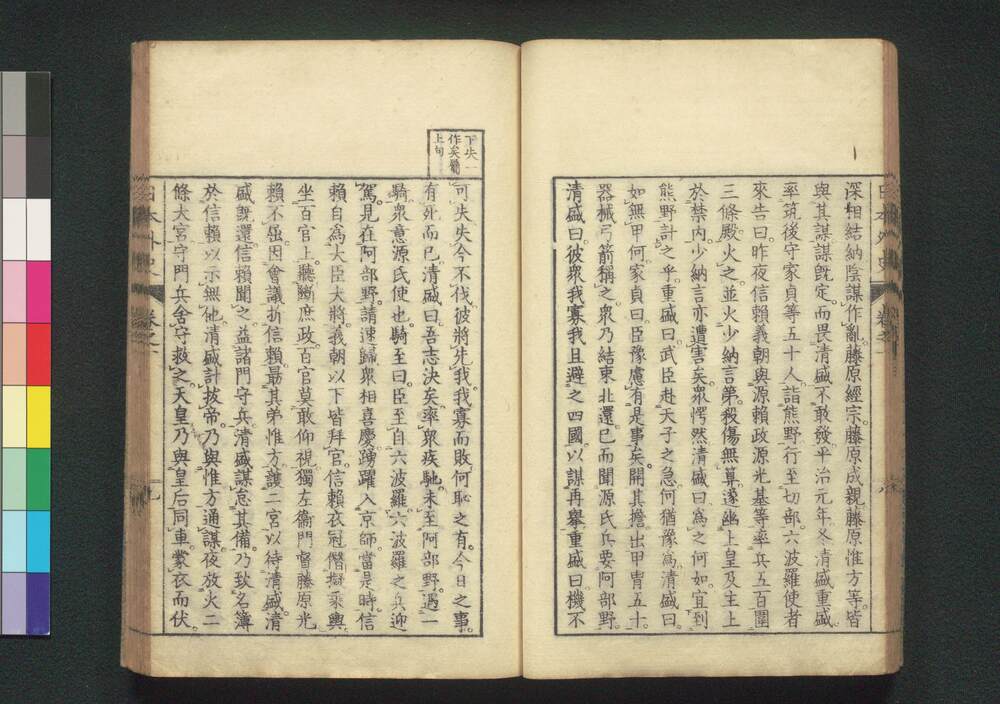 深相結納陰謀作亂藤原經宗藤原成親藤原惟方等皆
與其謀謀旣定而畏清盛不敢發平治元年冬清盛重盛
率筑後守家貞等五十人詣熊野行至切部六波羅使者
來告曰昨夜信賴義朝與源賴政源光基等率兵五百圍
三條殿火之並火少納言第殺傷無算遂幽上皇及主上
於禁內少納言亦遭害矣衆愕然清盛曰爲之何如宜到
熊野計之乎重盛曰武臣赴天子之急何猶豫爲清盛曰
如無甲何家貞曰臣豫慮有是事矣開其擔出甲冑五十
器械弓箭稱之衆乃結束北還已而聞源氏兵要阿部野
清盛曰彼衆我寡我且避之四國以謀再擧重盛曰機不
下失一
作矣屬
上句
可失失今不伐彼將先我我寡而敗何恥之有今日之事
有死而已清盛曰吾志決矣率衆疾馳未至阿部野遇一
騎衆意源氏使也騎至曰臣至自六波羅六波羅之兵迎
駕見在阿部野請速歸衆相喜慶踴躍入京師當是時信
賴自爲大臣大將義朝以下皆拜官信賴衣冠僭擬乘輿
坐百官上聽斷庶政百官莫敢仰視獨左衞門督藤原光
賴不屈因會議折信賴勗其弟惟方護二宮以待清盛清
盛旣還信賴聞之益諸門守兵清盛謀怠其備乃致名簿
於信賴以示無他清盛計拔帝乃與惟方通謀夜放火二
條大宮守門兵舍守救之天皇乃與皇后同車蒙衣而伏
日本外史 卷之一 九